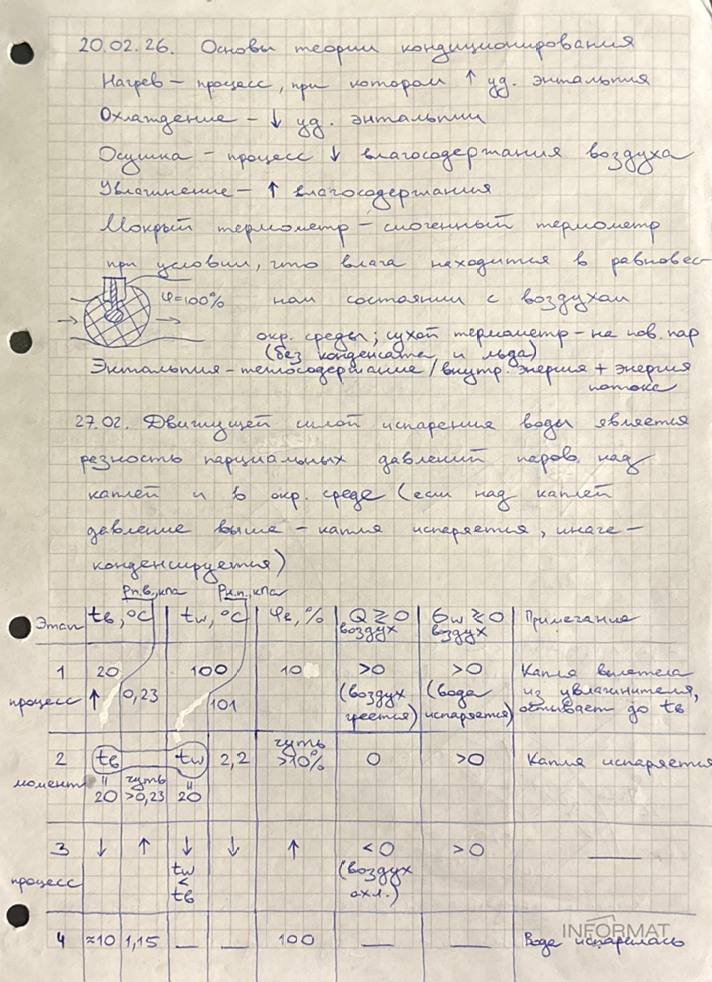 20.02.26. Основы теории кондиционирования
Нагрев – процесс, при котором ↑ уд. энтальпия
Охлаждение – ↓ уд. энтальпии
Осушка – процесс ↓ влагосодержания воздуха
Увлажнение – ↑ влагосодержания
Мокрый термометр – смоченный термометр
при условии, что влага находится в равновес-
φ=100% ном состоянии с воздухом
окр. среды; сухой термометр – на пов. пар
(без конденсата и льда)
Энтальпия – теплосодержание / внутр. энергия + энергия
потока
27.02. Движущей силой испарения воды является
разность парциальных давлений паров над
каплей и в окр. среде (если над каплей
давление выше – капля испаряется, иначе –
конденсируется)
Pп.в., кПа Pн.п., кПа
Этап tв, °C tw, °C φв, % Q ≷ 0 воздух Gw ≷ 0 воздух Примечание
1 20 100 10 >0 >0 Капля вылетела
процесс ↑ 0,23 101 (воздух греется) (вода испаряется) из увлажнителя, остывает до tв
2 tв tw 2,2 чуть >10% 0 >0 Капля испаряется
момент = 20 чуть >0,23 = 20
3 ↓ ↑ ↓ ↓ ↑ <0 >0 —
процесс tw < tв (воздух охл.)
4 ≈10 1,15 — — 100 — — Вода испарилась
INFORMAT